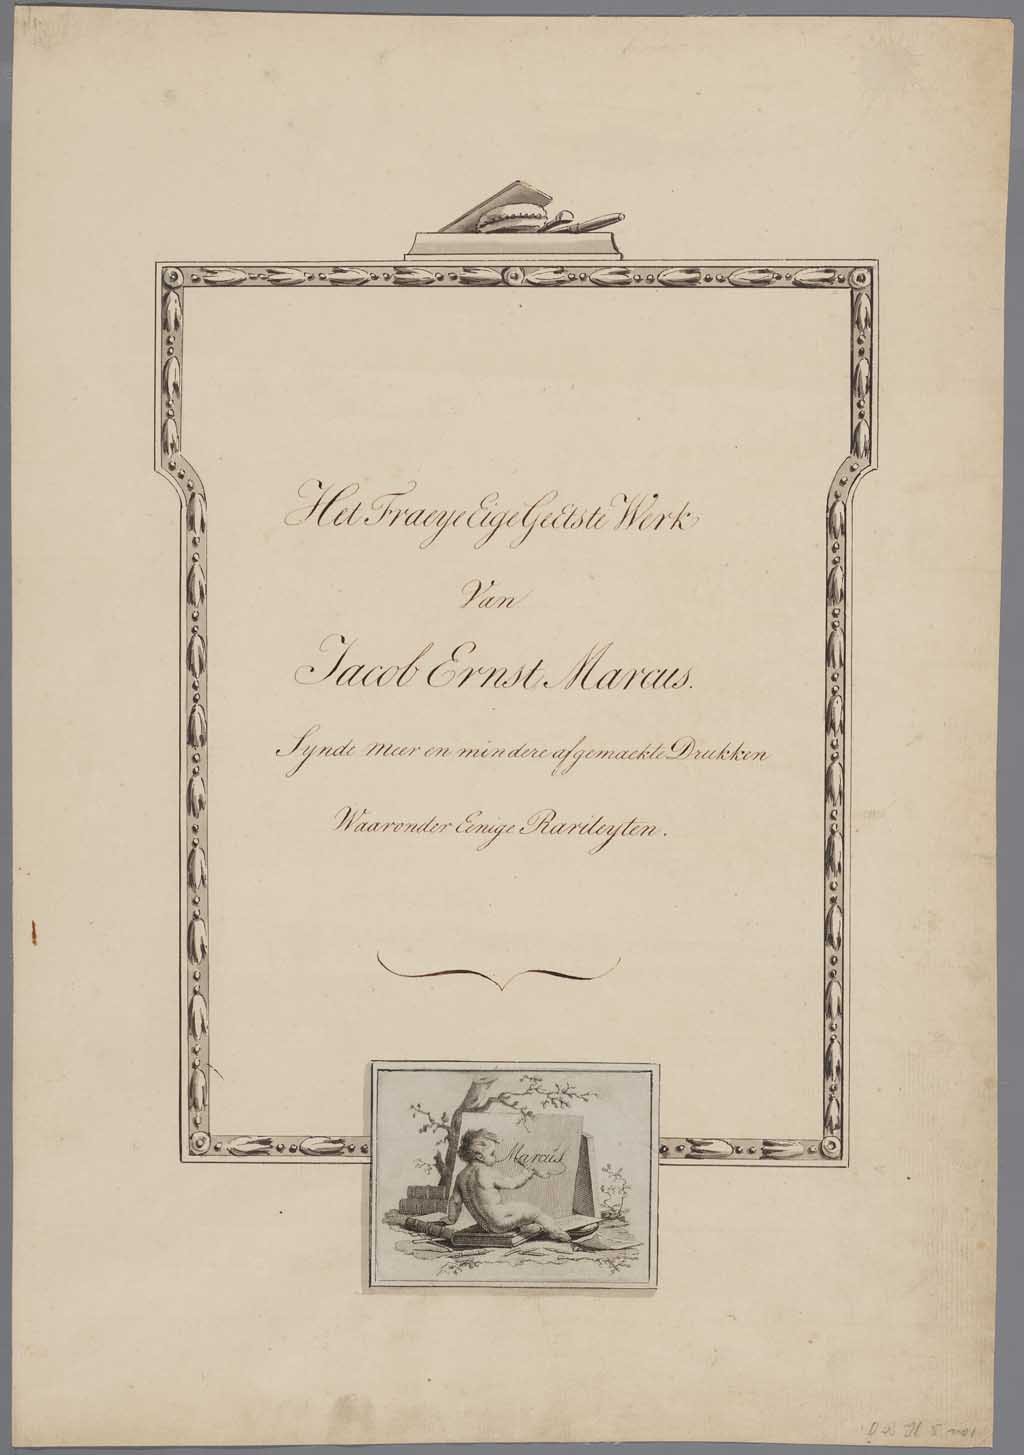 Het Fraeye Eige Geëtste Werk
Van
Jacob Ernst Marcus.
Synde meer en mindere afgemaekte Drukken
Waaronder Eenige Rariteyten.
Marcus